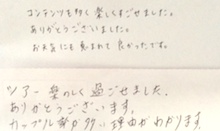 コンテンツも多く楽しくすごせました。
ありがとうございました。
お天気にも恵まれて良かったです。
ツアー楽しく過ごせました。
ありがとうございます。
カップル客が多い理由がわかります